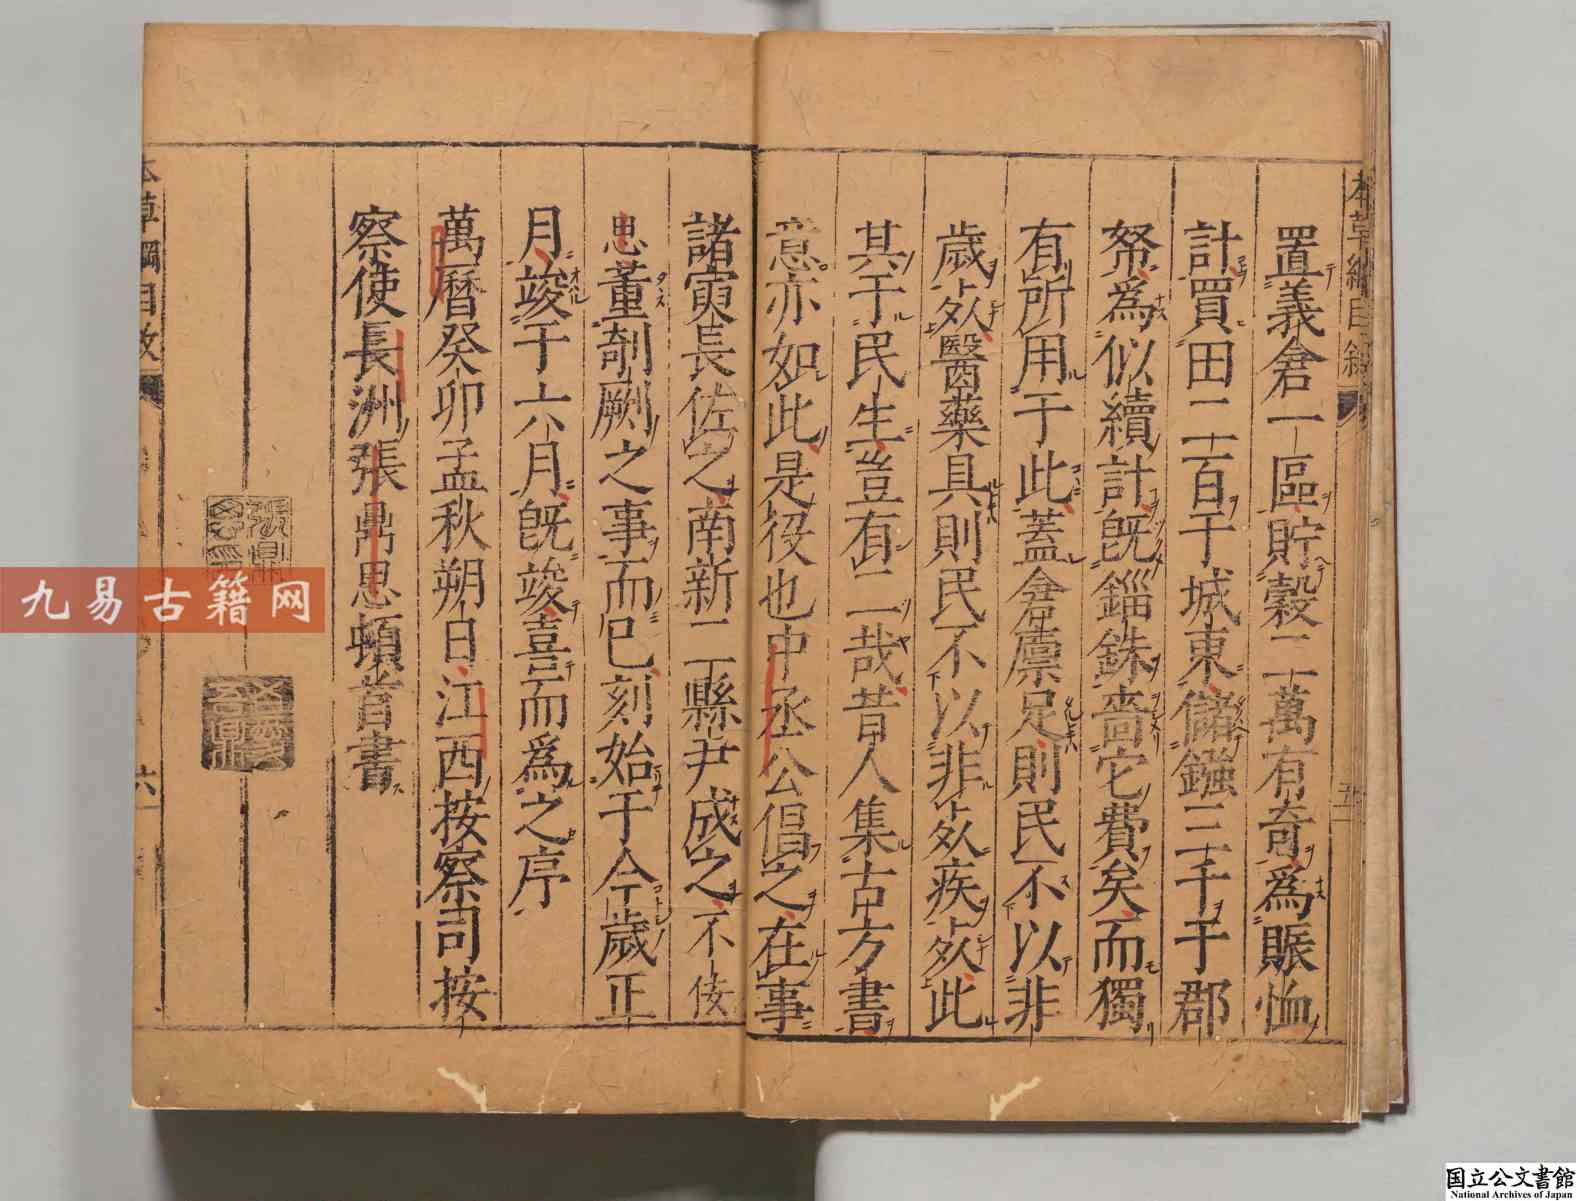 置義倉一區貯穀二萬有奇爲賑恤
計買田二百于城東儲鏹三千于郡
帑爲似續計旣錙銖嗇它費矣而獨
有所用于此蓋倉廪足則民不以非
歲殀醫藥具則民不以非殀疾殀此
其于民生豈有二哉昔人集古方書
意亦如此是役也中丞公倡之在事
諸寅長佐之南新二縣尹成之不佞
思董剞劂之事而已刻始于今歲正
月竣于六月旣竣喜而爲之序
萬曆癸卯孟秋朔日江西按察司按
察使長洲張鼎思頓首書
六
九易古籍网
国立公文書館
National Archives of Japan